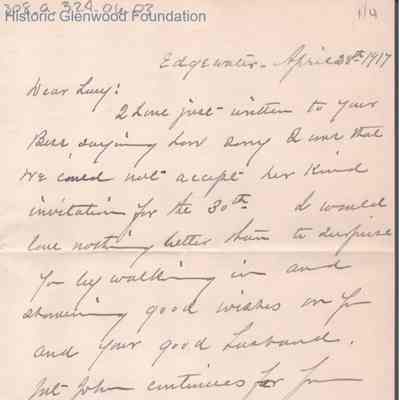 308.a.324.04.03
Historic Glenwood Foundation
1/4
Edgewater - April 28th 1917
Dear Lucy:
I have just written to your
Bess saying how sorry I was that
we could not accept her kind
invitation for the 30th. I would
love nothing better than to surprise
you by walking in and
showering good wishes on you
and your good husband.
but John continues far from